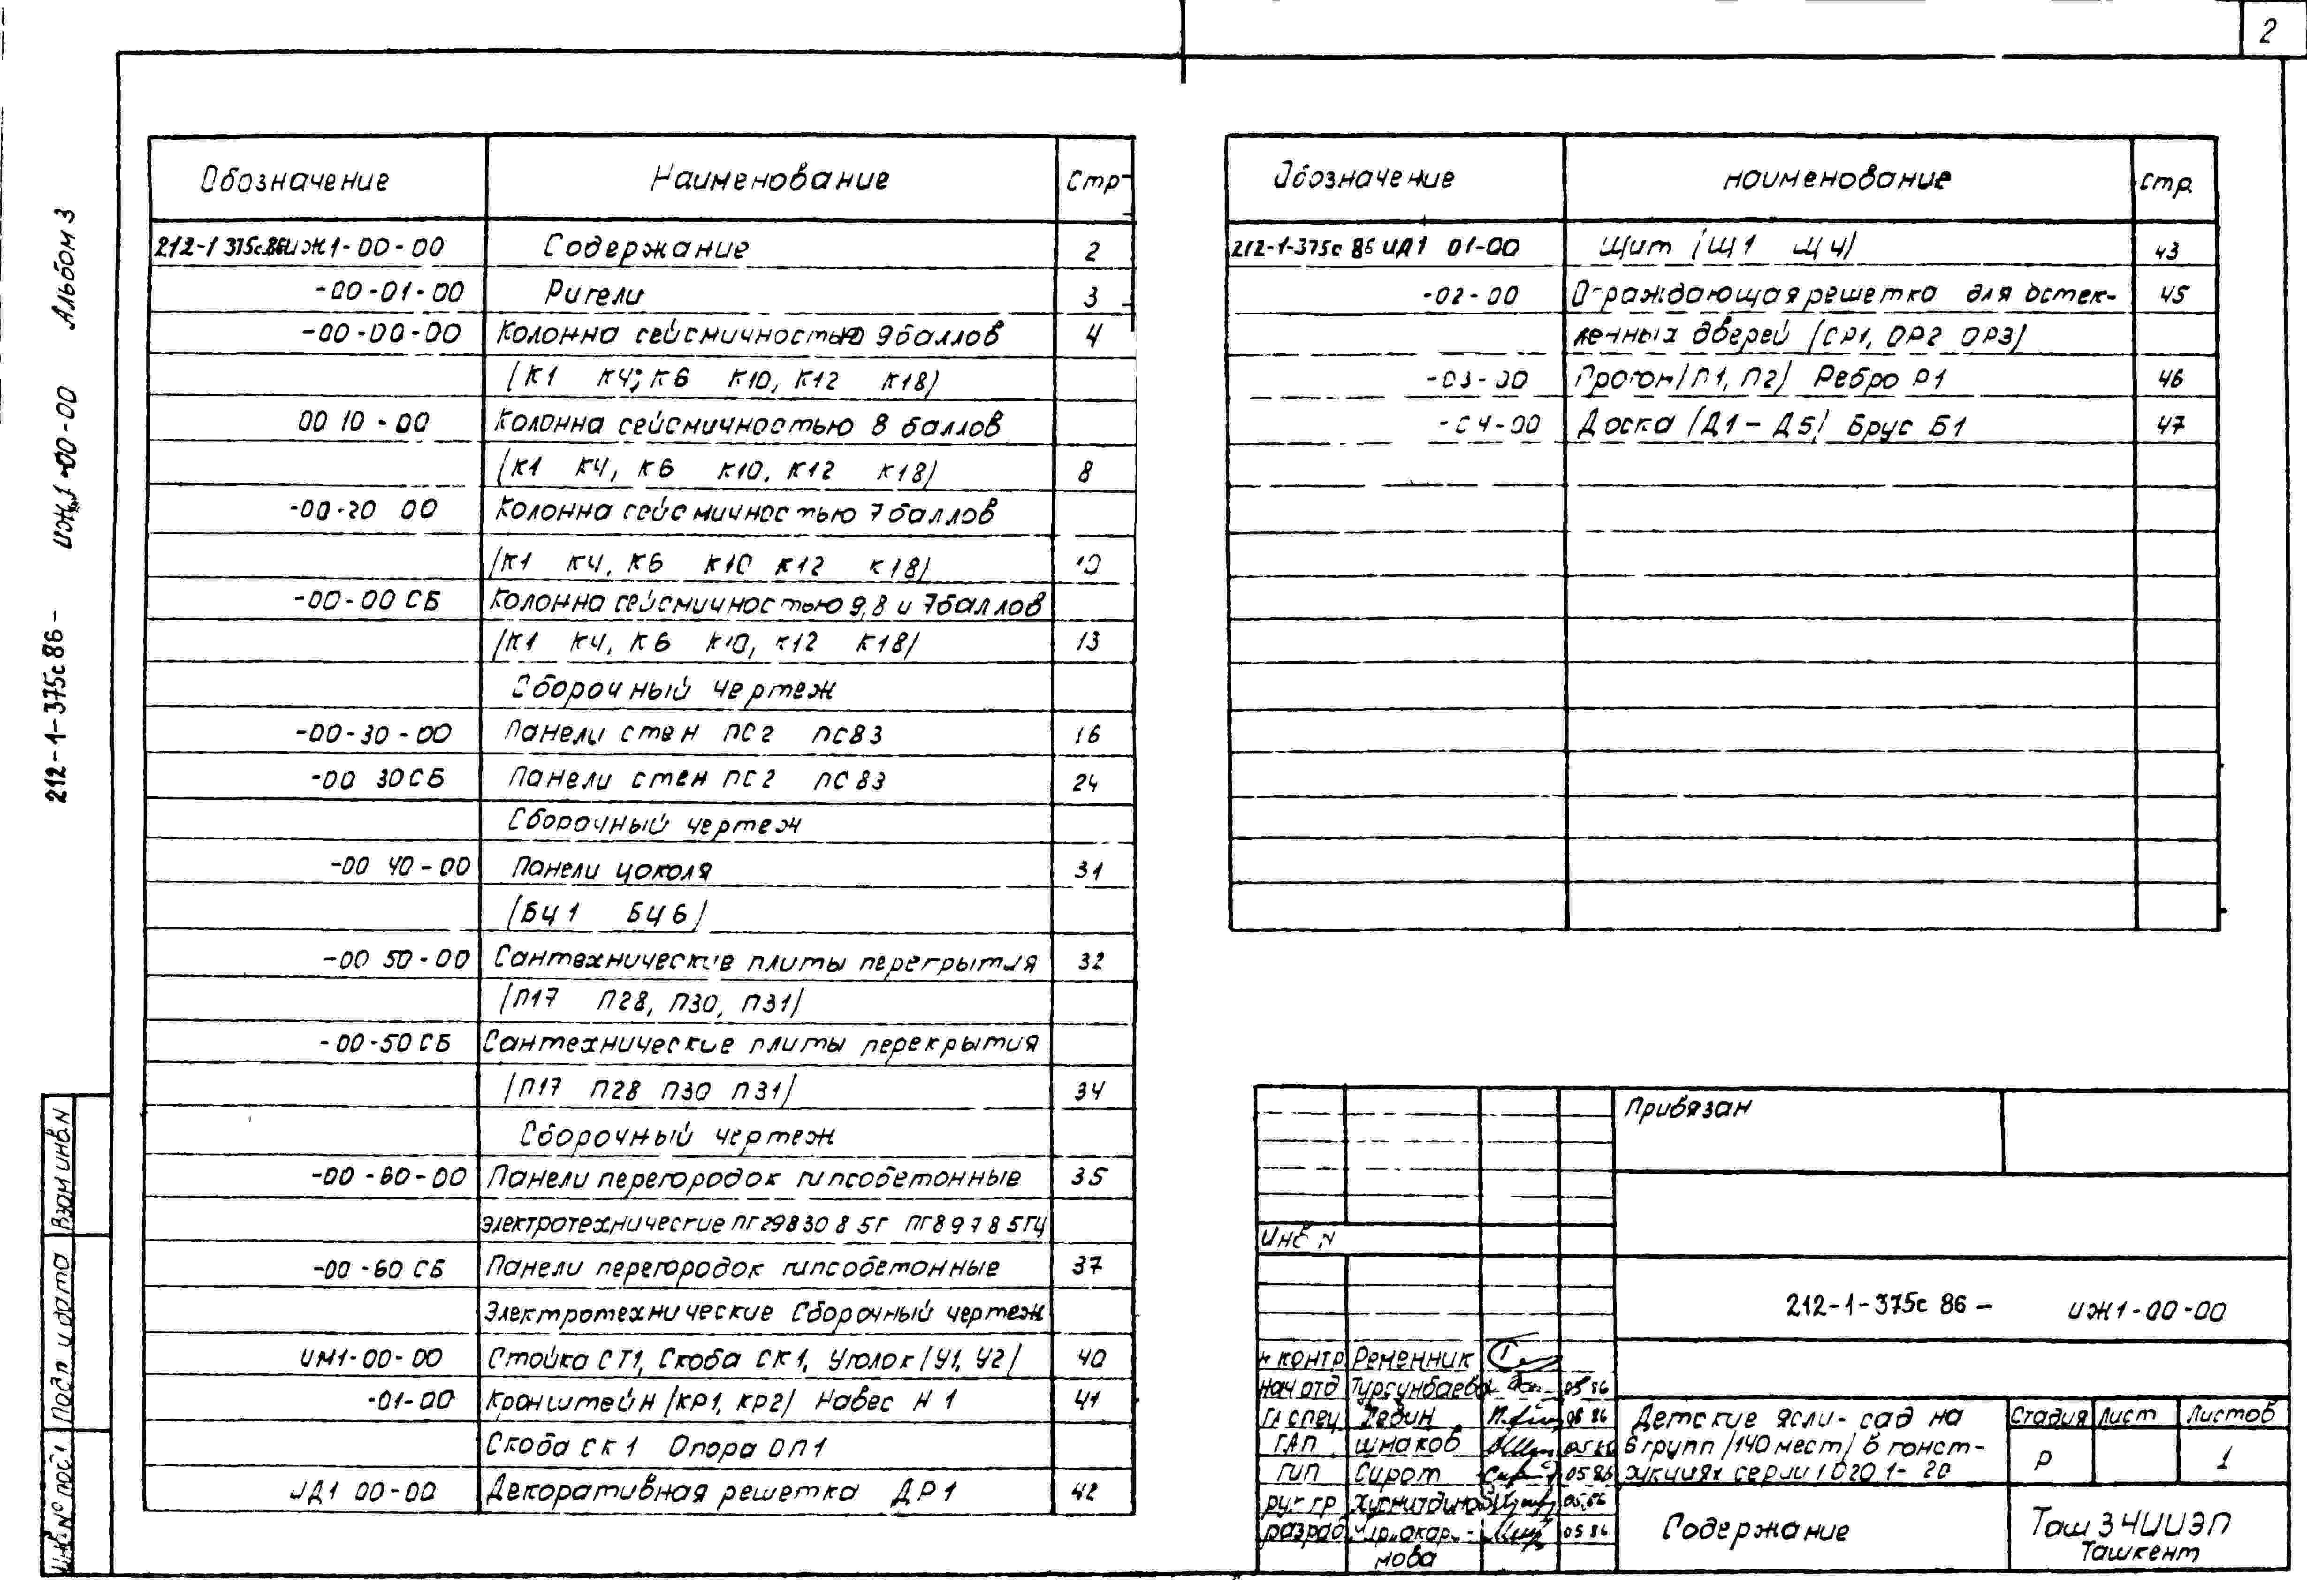 2
Обозначение Наименование Стр
212-1 375с.86 ИЖ1-00-00 Содержание 2
-00-01-00 Ригели 3
-00-00-00 Колонна сейсмичностью 9 баллов 4
/К1 К4; К6 К10, К12 К18/
00 10-00 Колонна сейсмичностью 8 баллов
/К1 К4, К6 К10, К12 К18/ 8
-00-20 00 Колонна сейсмичностью 7 баллов
/К1 К4, К6 К10 К12 К18/ 10
-00-00 СБ Колонна сейсмичностью 9,8 и 7 баллов
/К1 К4, К6 К10, К12 К18/ 13
Сборочный чертеж
-00-30-00 Панели стен ПС2 ПС83 16
-00 30 СБ Панели стен ПС2 ПС83 24
Сборочный чертеж
-00 40-00 Панели цоколя 31
/БЦ1 БЦ6/
-00 50-00 Сантехнические плиты перекрытия 32
/П17 П28, П30, П31/
-00-50 СБ Сантехнические плиты перекрытия
/П17 П28 П30 П31/ 34
Сборочный чертеж
-00-60-00 Панели перегородок гипсобетонные 35
электротехнические ПГ29830 8 5Г ПГ8 9 7 8 5ГЦ
-00-60 СБ Панели перегородок гипсобетонные 37
Электротехнические Сборочный чертеж
ИМ1-00-00 Стойка СТ1, Скоба СК1, Уголок /У1, У2/ 40
-01-00 Кронштейн /КР1, КР2/ Навес Н1 41
Скоба СК1 Опора ОП1
ИД1 00-00 Декоративная решетка ДР1 42
Обозначение Наименование стр.
212-1-375с 86 ИД1 01-00 Щит /Щ1 Щ4/ 43
-02-00 Ограждающая решетка для остек- 45
ленных дверей /ОР1, ОР2 ОР3/
-03-00 Прогон /П1, П2/ Ребро Р1 46
-04-00 Доска /Д1-Д5/ Брус Б1 47
212-1-375с86- ИЖ1-00-00 Альбом 3
Взам инв.N
Подп и дата
Инв.N° подл
Привязан
Инв N
212-1-375с 86- ИЖ1-00-00
н контр Ременник
нач отд Турсунбаева 05 86
гл спец 06 86
ГАП Шмаков 05 86
ГИП Сирот 05 86
рук гр 05.86
разраб 05 86
мова
Детские ясли-сад на
6 групп /140 мест/ в конст-
рукциях серии 1 020 1-20
Стадия Лист Листов
Р 1
Содержание
ТашЗНИИЭП
Ташкент